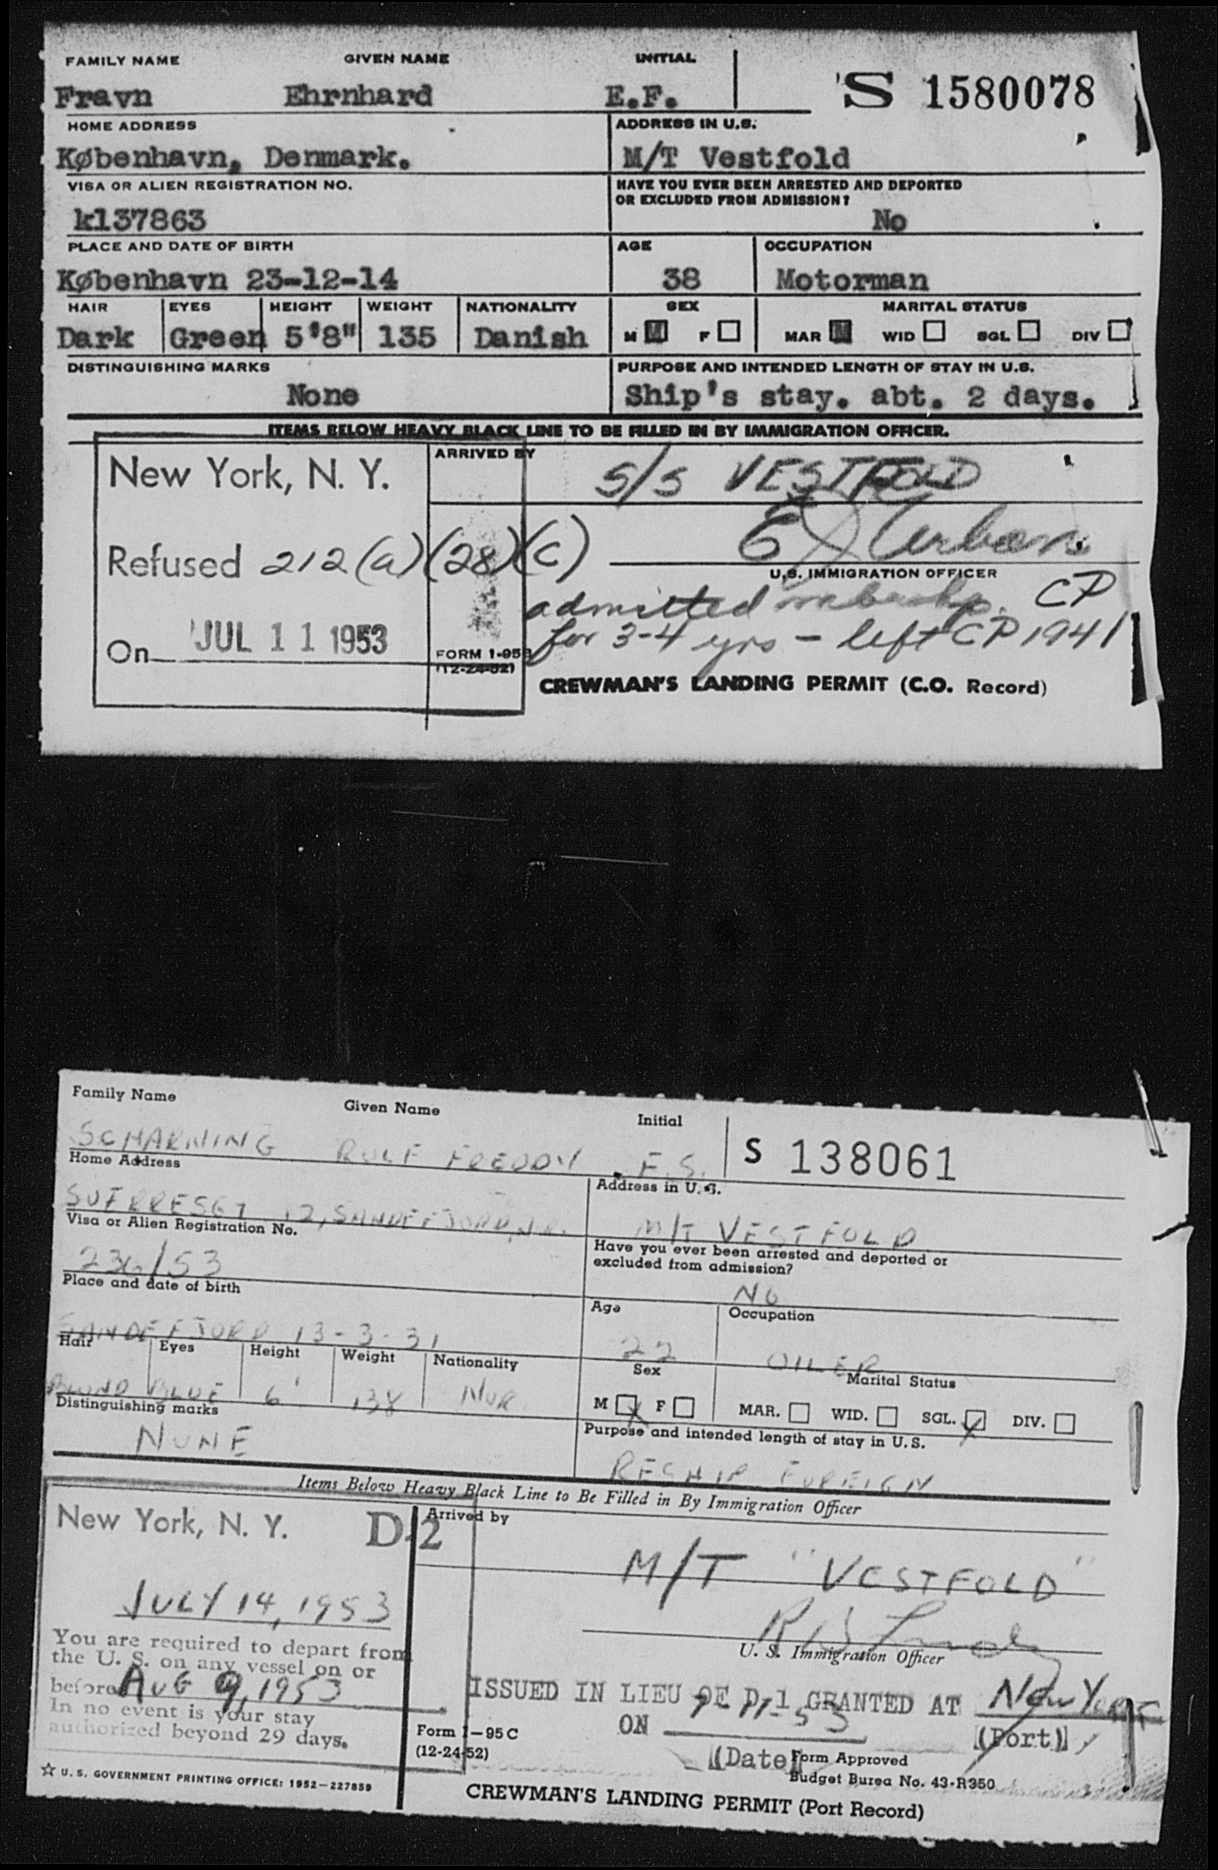 FAMILY NAME GIVEN NAME INITIAL
Fravn Ehrnhard E.F. S 1580078
HOME ADDRESS ADDRESS IN U.S.
København, Denmark. M/T Vestfold
VISA OR ALIEN REGISTRATION NO. HAVE YOU EVER BEEN ARRESTED AND DEPORTED
OR EXCLUDED FROM ADMISSION?
k137863 No
PLACE AND DATE OF BIRTH AGE OCCUPATION
København 23-12-14 38 Motorman
HAIR EYES HEIGHT WEIGHT NATIONALITY SEX MARITAL STATUS
Dark Green 5'8" 135 Danish M F MAR WID SGL DIV
DISTINGUISHING MARKS PURPOSE AND INTENDED LENGTH OF STAY IN U.S.
None Ship's stay. abt. 2 days.
ITEMS BELOW HEAVY BLACK LINE TO BE FILLED IN BY IMMIGRATION OFFICER.
New York, N. Y. ARRIVED BY S/S VESTFOLD
Refused 212(a)(28)(C) Urban
U.S. IMMIGRATION OFFICER
admitted CP
On JUL 11 1953 for 3-4 yrs - left CP 1941
FORM I-95
(12-24-52)
CREWMAN'S LANDING PERMIT (C.O. Record)
Family Name Given Name Initial
SCHARNING ROLF FREDDY F.S. S 138061
Home Address Address in U.S.
12, SANDEFJORD, M/T VESTFOLD
Visa or Alien Registration No. Have you ever been arrested and deported or
excluded from admission?
236/53 NO
Place and date of birth Age Occupation
SANDEFJORD 13-3-31 22 OILER
Hair Eyes Height Weight Nationality Sex Marital Status
BLOND BLUE 6' 138 NOR M X F MAR. WID. SGL. DIV.
Distinguishing marks Purpose and intended length of stay in U.S.
NONE RESHIP FOREIGN
Items Below Heavy Black Line to Be Filled in By Immigration Officer
New York, N. Y. D-2 Arrived by
M/T "VESTFOLD"
JULY 14, 1953
U. S. Immigration Officer
You are required to depart from
the U. S. on any vessel on or
before AUG 9, 1953
In no event is your stay
authorized beyond 29 days.
ISSUED IN LIEU OF D-1 GRANTED AT New York
ON 7-11-53 (Port)
(Date)
Form I-95 C
(12-24-52)
Form Approved
Budget Bureau No. 43-R350
☆ U. S. GOVERNMENT PRINTING OFFICE: 1952-227859
CREWMAN'S LANDING PERMIT (Port Record)